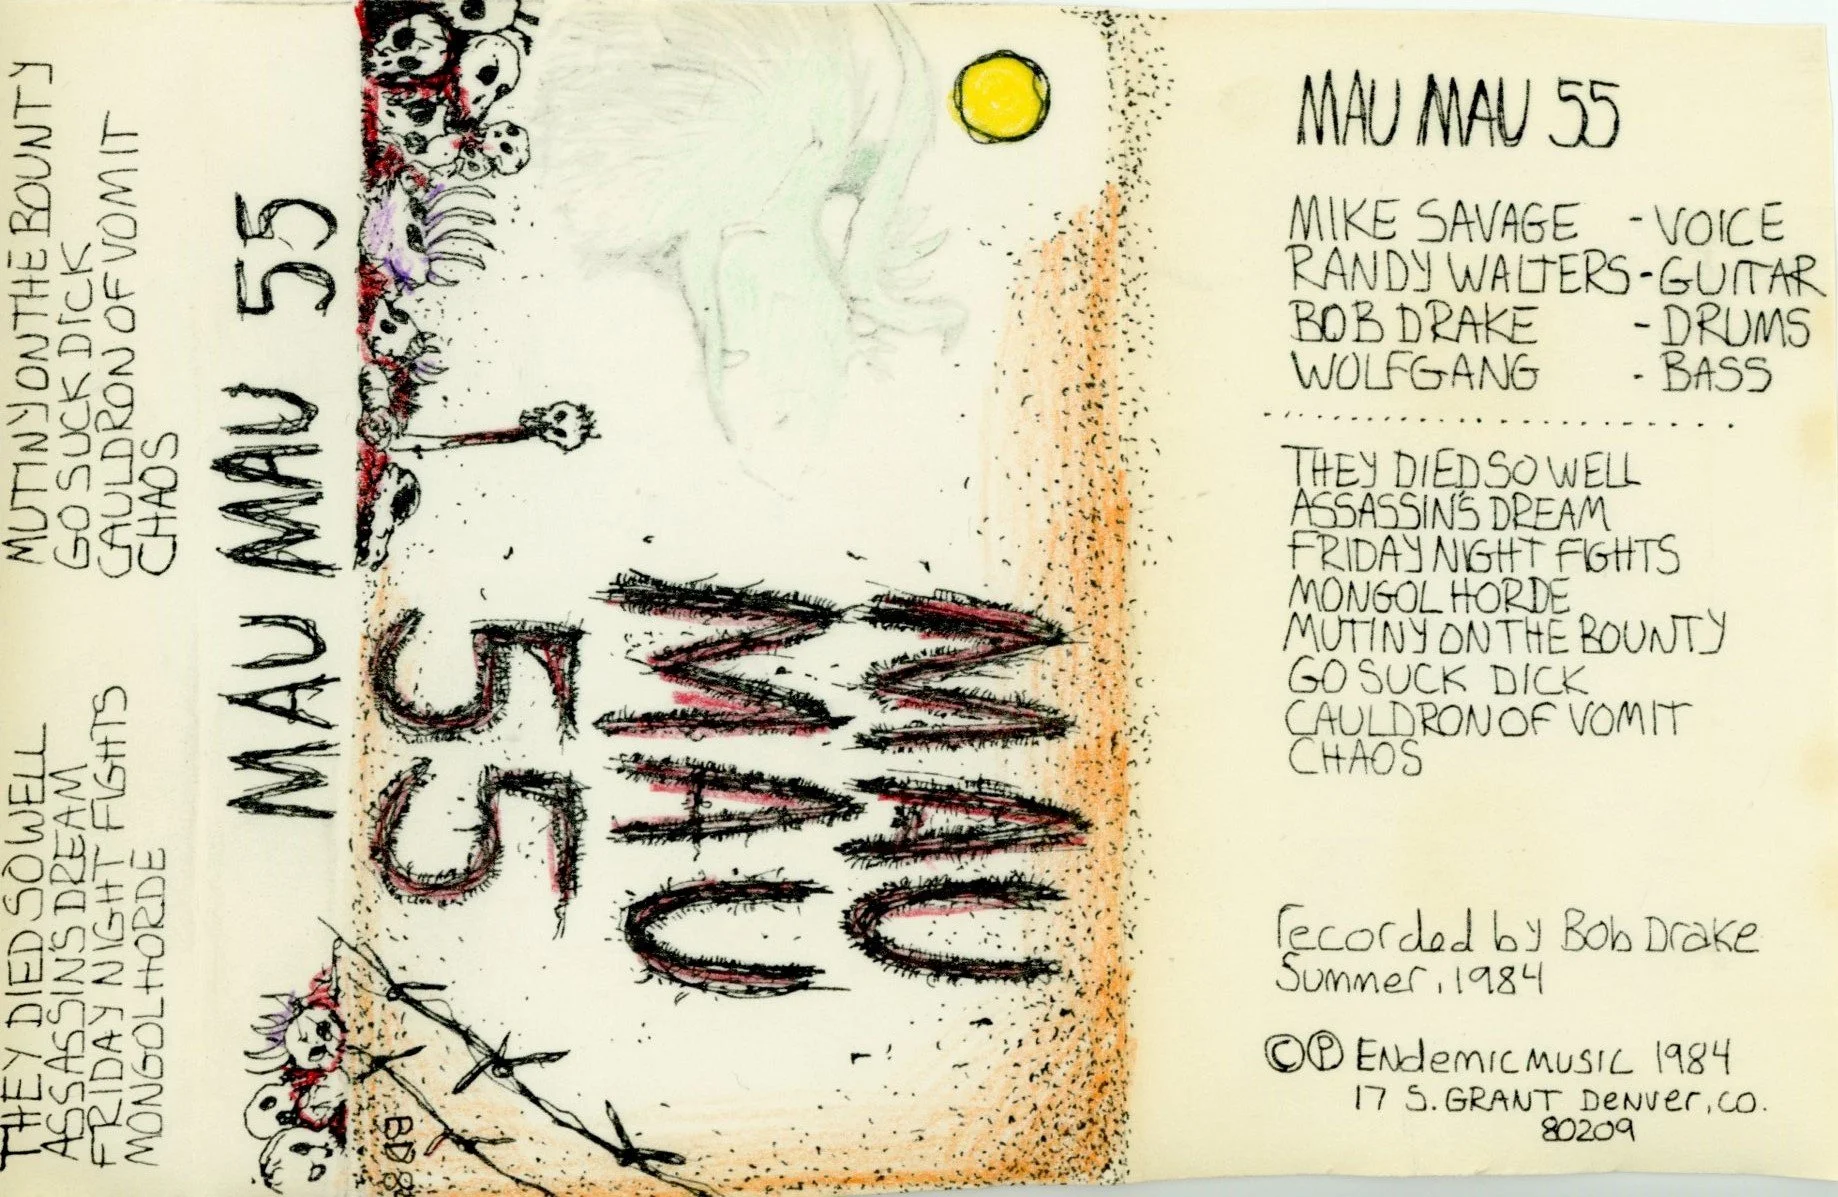 MUTINY ON THE BOUNTY
GO SUCK DICK
CAULDRON OF VOMIT
CHAOS
THEY DIED SO WELL
ASSASSIN'S DREAM
FRIDAY NIGHT FIGHTS
MONGOL HORDE
MAU MAU 55
MAU
MAU
55
BD8
MAU MAU 55
MIKE SAVAGE - VOICE
RANDY WALTERS - GUITAR
BOB DRAKE - DRUMS
WOLFGANG - BASS
THEY DIED SO WELL
ASSASSIN'S DREAM
FRIDAY NIGHT FIGHTS
MONGOL HORDE
MUTINY ON THE BOUNTY
GO SUCK DICK
CAULDRON OF VOMIT
CHAOS
recorded by Bob Drake
Summer, 1984
©℗ ENdemic MUSIC 1984
17 S. GRANT DeNver, CO.
80209